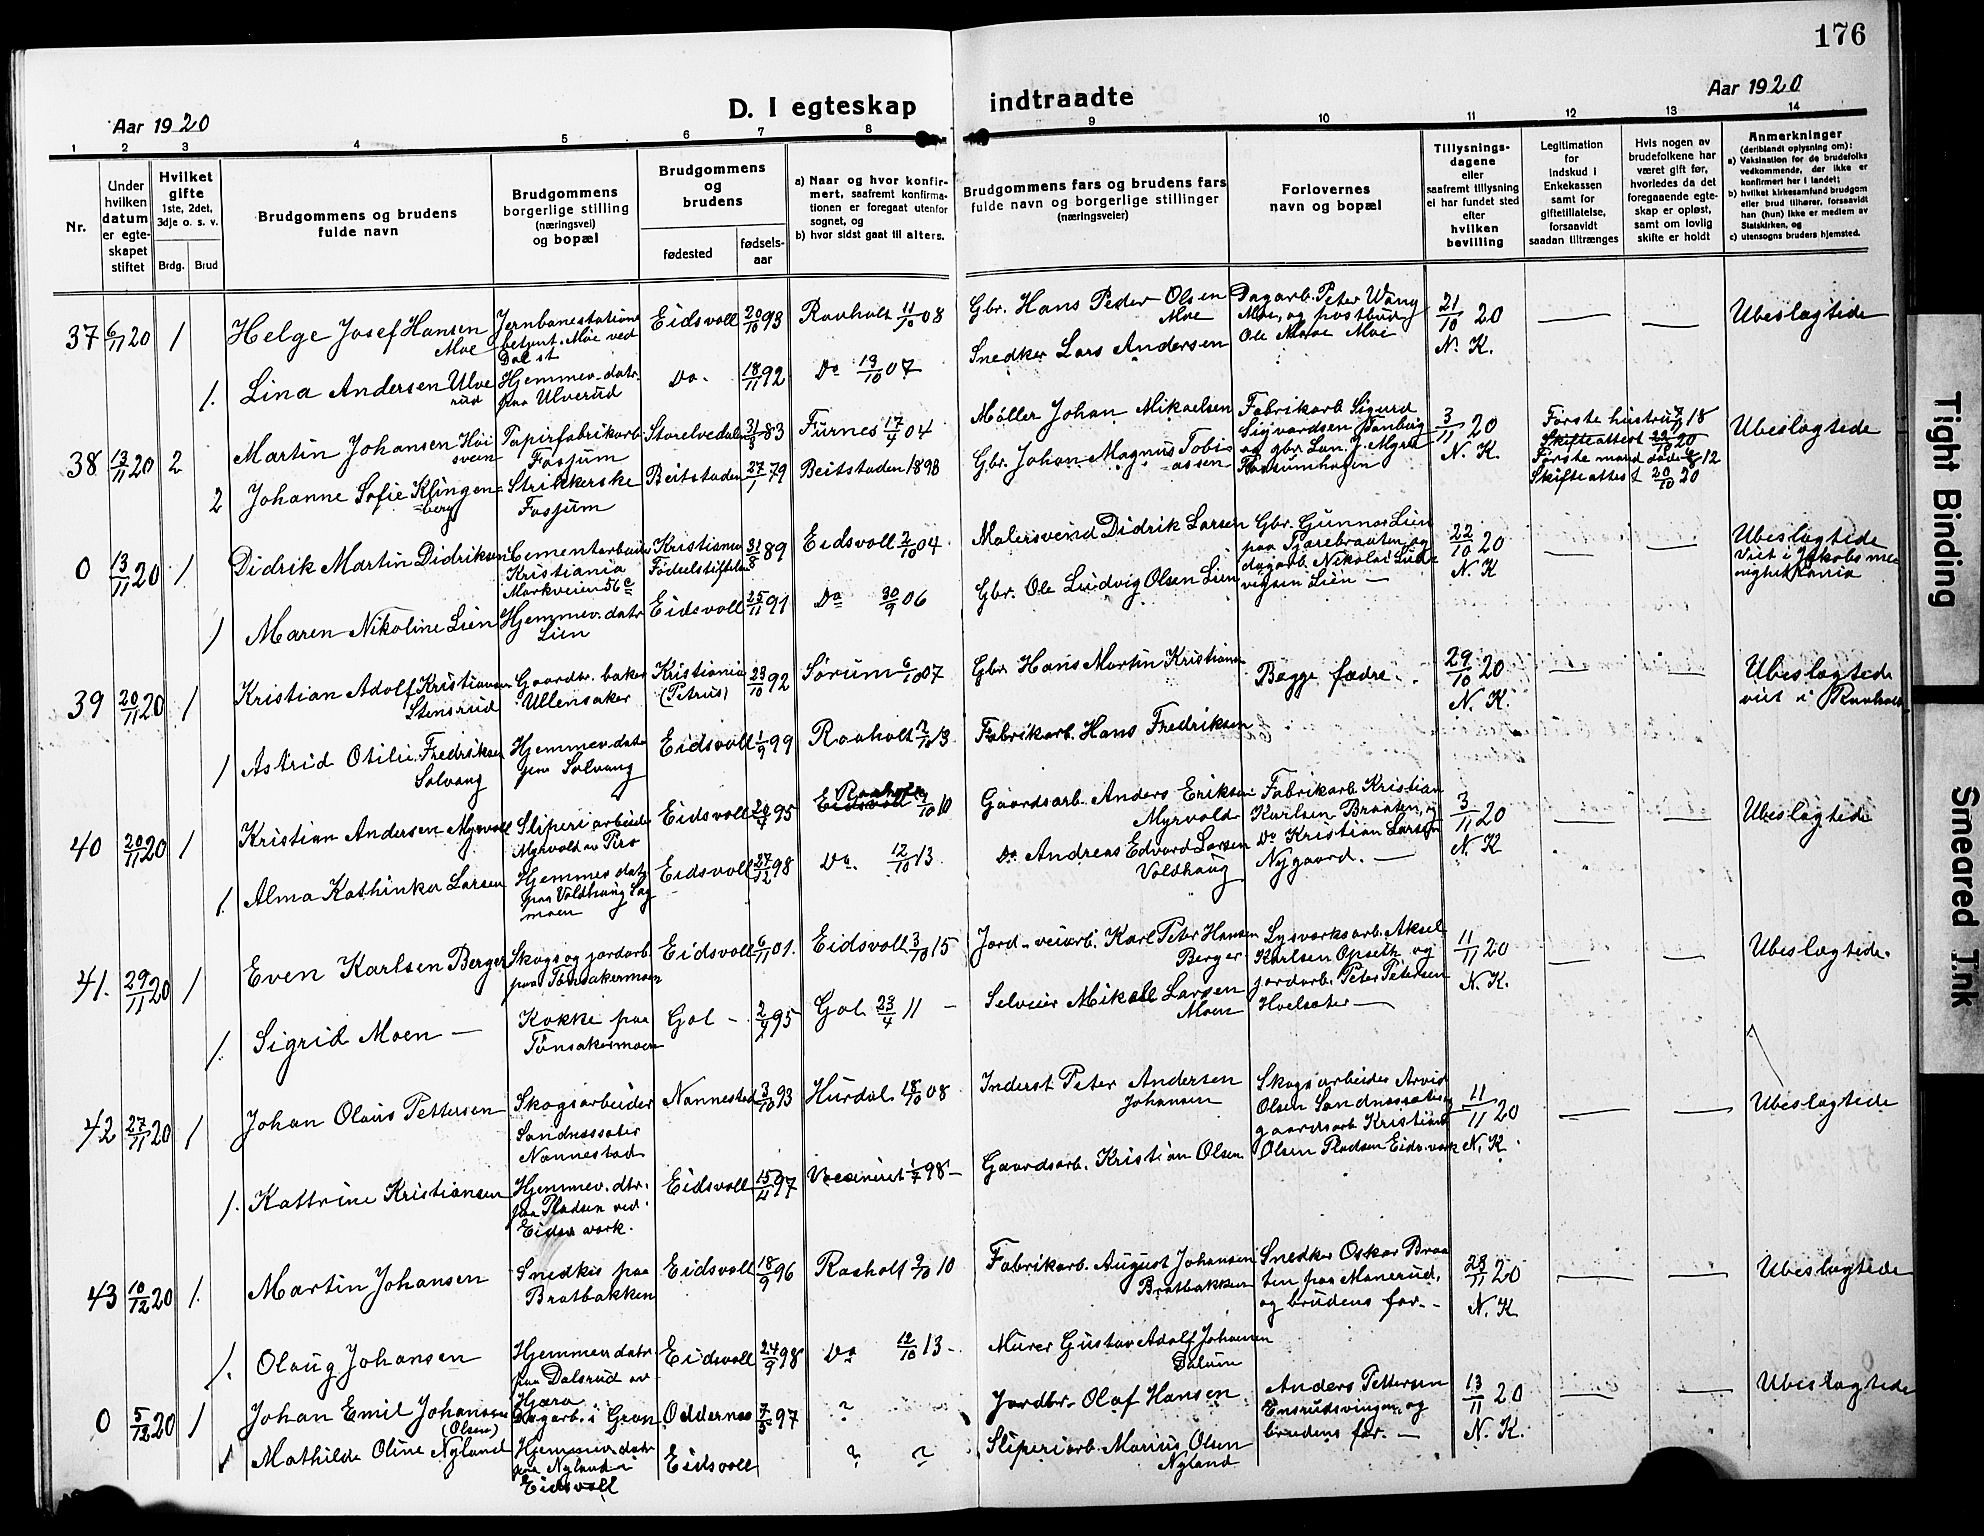 176
D. I egteskap indtraadte
Aar 1920
Aar 1920
1 2 3 4 5 6 7 8 9 10 11 12 13 14
Nr.
Under hvilken datum er egteskapet stiftet
Hvilket gifte 1ste, 2det, 3dje o. s. v.
Brdg. Brud
Brudgommens og brudens fulde navn
Brudgommens borgerlige stilling (næringsvei) og bopæl
Brudgommens og brudens
fødested
fødselsaar
a) Naar og hvor konfirmert, saafremt konfirmationen er foregaat utenfor sognet, og
b) hvor sidst gaat til alters.
Brudgommens fars og brudens fars fulde navn og borgerlige stillinger (næringsveier)
Forlovernes navn og bopæl
Tillysningsdagene eller saafremt tillysning ei har fundet sted efter hvilken bevilling
Legitimation for indskud i Enkekassen samt for giftetilladelse, forsaavidt saadan tiltrænges
Hvis nogen av brudefolkene har været gift før, hvorledes da det foregaaende egteskap er opløst, samt om lovlig skifte er holdt
Anmerkninger (deriblandt oplysning om):
a) Vaksination for de brudefolks vedkommende, der ikke er konfirmert her i landet;
b) hvilket kirkesamfund brudgom eller brud tilhører, forsaavidt han (hun) ikke er medlem av Statskirken, og
c) utensogns bruders hjemsted.
37 6/11 20 1 Helge Josef Hansen Moe Jernbanestations betjent. Moe ved Dal st Eidsvoll 20/10 93 Raaholt 11/10 08 Gbr. Hans Peder Olsen Moe Dagarb. Peter Wang Moe, og postbud Ole Moe 21/10 20 N. K. — — Ubeslægtede
1. Lina Andersen Ulverud Hjemmev. datr. paa Ulverud Do. 18/11 92 Do 13/10 07 Snedker Lars Andersen
38 13/11 20 2 Martin Johansen Høisveen Papirfabrikarb. Fosjum Storelvedalen 31/3 83 Furnes 17/4 04 Møller Johan Mikaelsen Fabrikarb Sigurd Sigvardsen og gbr. Lau. J. Myra 3/11 20 N. K. Første hustru 18 Skifteattest 20 Første mand død 12 Skifteattest 20/10 20 Ubeslægtede
2 Johanne Sofie Klingenberg Strikkerske Fosjum Beitstaden 27/1 79 Beitstaden 1893 Gbr. Johan Magnus Tobiassen
0 13/11 20 1 Didrik Martin Didriksen Cementarbeider Kristiania Markveien 56c Kristiania Fødselstiftelse 31/8 89 Eidsvoll 2/10 04 Malersvend Didrik Larsen Gbr. Gunnar Lien paa Tjærebraaten, og dagarb. Nikolai Ludvigsen Lien — 22/10 20 N. K — — Ubeslægtede Viet i Jakobs menighet Krania
1 Maren Nikoline Lien Hjemmev. datr Lien Eidsvoll 25/11 91 Do 30/9 06 Gbr. Ole Ludvig Olsen Lien
39 20/11 20 1 Kristian Adolf Kristiansen Stensrud Gaardbr. baker Ullensaker Kristiania (Petrus) 23/10 92 Sørum 6/10 07 Gbr. Hans Martin Kristiansen Begge fædre. 29/10 20 N. K. — — Ubeslægtede viet i Raaholt
1 Astrid Otilie Fredriksen Solvang Hjemmev. datr Solvang Eidsvoll 1/9 99 Raaholt 13 Fabrikarb. Hans Fredriksen
40 20/11 20 1 Kristian Andersen Myrvold Sliperiarbeider Myrvold av Piro Eidsvoll 20/7 95 Eidsvoll Raaholt 10 Gaardsarb. Anders Eriksen Myrvold Fabrikarb. Kristian Karlsen Braaten, og Do Kristian Larsen Nygaard. — 3/11 20 N. K — — Ubeslægtede
1. Alma Kathinka Larsen Hjemmev. datr paa Voldhaug Sagmoen Eidsvoll 27/12 98 Do. 12/10 13 Do. Andreas Edvard Larsen Voldhaug
41. 29/11 20 1 Even Karlsen Berger Skogs og jordarb paa Tønsakermoen Eidsvoll 6/11 01. Eidsvoll 3/10 15 Jord- veiarb. Karl Peter Hansen Berger Lysverksarb. Aksel Karlsen Opseth, og jordarb. Peter Petersen Hoelsæter — 11/11 20 N. K. — — Ubeslægtede.
1. Sigrid Moen — Kokke paa Tønsakermoen Gol - 2/4 95 Gol 23/4 11 — Selveier Mikal Larsen Moen
42 27/11 20 1 Johan Olaus Pettersen Skogsarbeider Sandnessæter Nannestad Nannestad 3/10 93 Hurdal 18/10 08 Inderst Peter Andersen Johansen Skogsarbeider Arvid Olsen Sandnessæter, gaardsarb. Kristian Olsen Pladsen Eidsv. verk 11/11 20 N. K. — — Ubeslægtede
1. Kattrine Kristiansen Hjemmev. dtr. paa Pladsen ved Eidsv verk. Eidsvoll 15/4 97 Vaccineret 1/7 98 — Gaardsarb. Kristian Olsen.
43 10/12 20 1. Martin Johansen Snedker paa Bratbakken Eidsvoll 18/9 96 Raaholt 9/10 10 Fabrikarb. August Johansen Bratbakken Snedker Oskar Braaten paa Manerud, og brudens far. — 28/11 20 N. K — — Ubeslægtede
1. Olaug Johansen Hjemmev datr. paa Dalsrud av Hjæra Eidsvoll 24/9 98 Do 12/10 13 — Murer Gustav Adolf Johansen Dalum
0 5/12 20 1 Johan Emil Johansen (Olsen) Dagarb. i Gran Oddernes 7/5 97 ? Jordbr. Olaf Hansen Anders Pettersen Ensrudsvingen, og brudens far. — 13/11 20 N. K. — — Ubeslægtede
1 Mathilde Oline Nyland Hjemmev. datr paa Nyland i Eidsvoll Eidsvoll ? ? Sliperiarb. Marius Olsen Nyland
Tight Binding
Smeared Ink